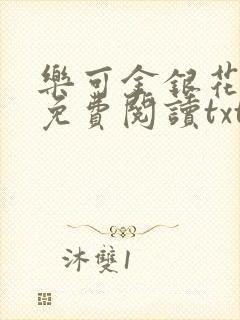 樂可金銀花
免費閱讀txt
沐雙1